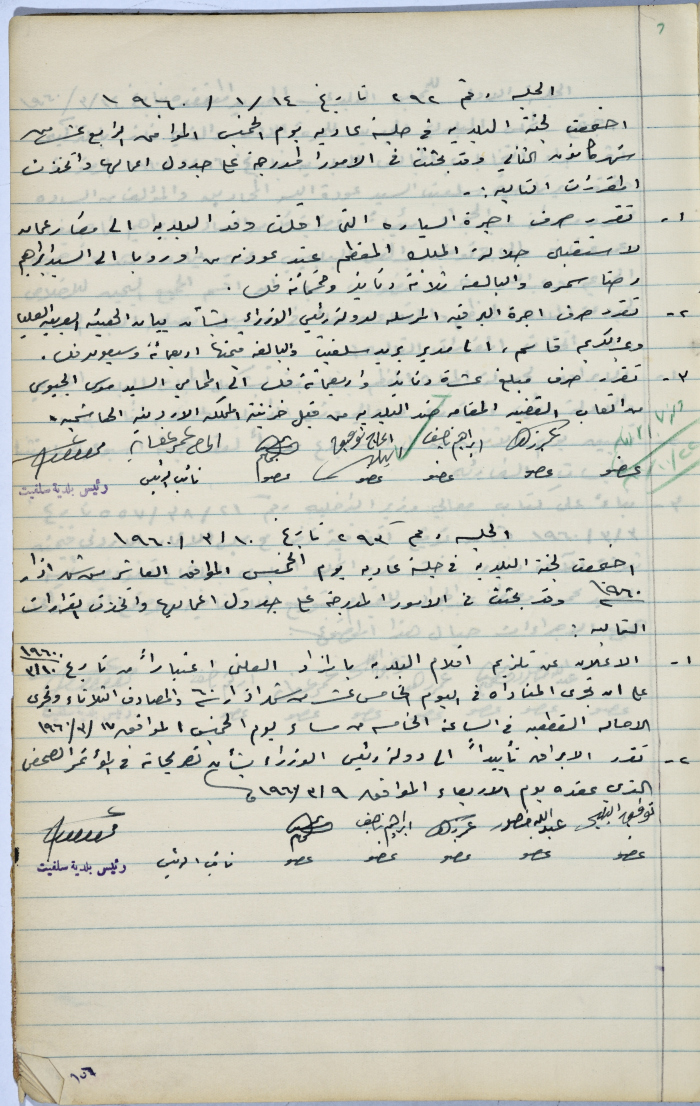 الجلسة رقم ٢٩٢ تاريخ ١٤/ ١ / ١٩٦٠
اجتمعت لجنة البلدية في جلسة عادية يوم الخميس الموافق الرابع عشر من
شهر كانون الثاني وقد بحثت في الامور المدرجة على جدول اعمالها واتخذت
المقررات التالية :-
١- تقرر صرف اجرة السيارة التي اقلت وفد البلدية الى مطار عمان
لاستقبال جلالة الملك المعظم عند عودته من اوروبا الى السيد ابراهيم
رضا سمره والبالغة ثلاثة دنانير وخمسمائة فلس .
٢- تقرر صرف اجرة البرقية المرسلة لدولة رئيس الوزراء بشأن بيان الهيئة العربية العليا
وعبد الكريم قاسم ، الى مدير بريد سلفيت والبالغ قيمتها اربعمائة وسبعون فلس .
٣- تقرر صرف مبلغ عشرة دنانير واربعمائة فلس الى المحامي السيد موسى الجيوسي
من اتعاب القضية المقامة ضد البلدية من قبل خزينة المملكة الاردنية الهاشمية .
ابراهيم نصيف
عضو عضو عضو عضو عضو نائب الرئيس رئيس بلدية سلفيت
الجلسة رقم ٢٩٣ تاريخ ١٠ / ٣ / ١٩٦٠
اجتمعت لجنة البلدية في جلسة عادية يوم الخميس الموافق العاشر من شهر اذار
١٩٦٠ وقد بحثت في الامور المدرجة على جدول اعمالها واتخذت القرارات
التالية :
١- الاعلان عن تلزيم اقلام البلدية بالمزاد العلني اعتباراً من تاريخ ١٠/٣/١٩٦٠
على ان تجرى المناداه في اليوم الخامس عشر من شهر اذار سنة ٦٠ والمصادف الثلاثاء وتجرى
الاحالة القطعية في الساعة الخامسة من مساء يوم الخميس الموافق ١٧/٣/١٩٦٠
٢- تقرر الابراق تأييداً الى دولة رئيس الوزراء بشأن تصريحاته في المؤتمر الصحفي
الذي عقده يوم الاربعاء الموافق ٩/٣/١٩٦٠
عبدالله منصور ابراهيم نصيف
عضو عضو عضو عضو عضو نائب الرئيس رئيس بلدية سلفيت
١٥٦